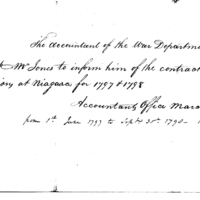 The Accountant of the War Departmen
Mr Jones to inform him of the contract
at Niagara for 1797 & 1798
Accountants Office Marc
from 1st June 1797 to Sept 30th 1798